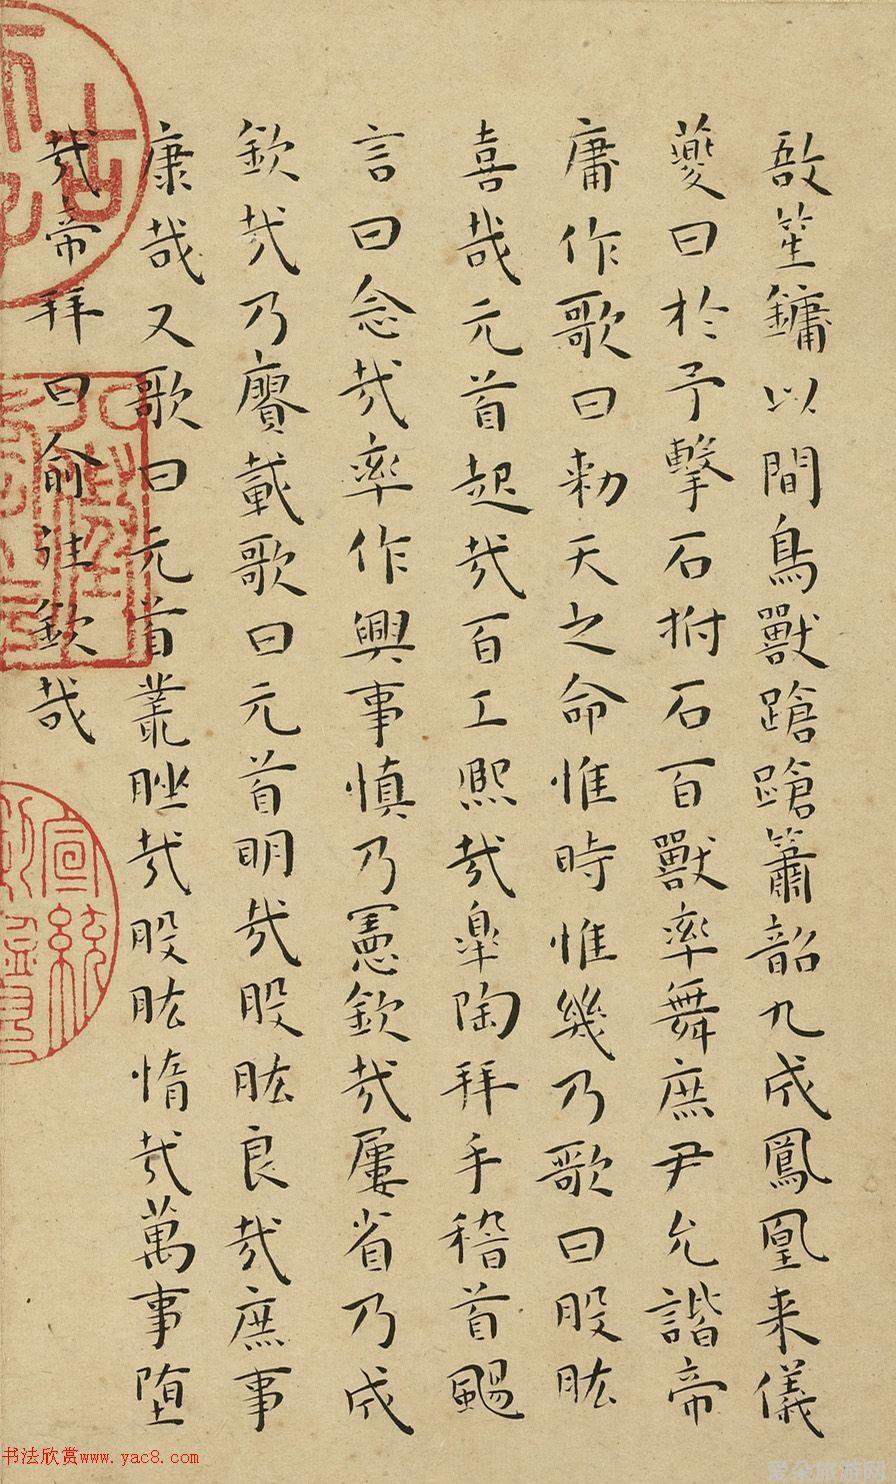 敔笙鏞以間鳥獸蹌蹌簫韶九成鳳凰来儀
夔曰於予擊石拊石百獸率舞庶尹允諧帝
庸作歌曰勑天之命惟時惟幾乃歌曰股肱
喜哉元首起哉百工熙哉皐陶拜手稽首颺
言曰念哉率作興事慎乃憲欽哉屢省乃成
欽哉乃賡載歌曰元首明哉股肱良哉庶事
康哉又歌曰元首叢脞哉股肱惰哉萬事堕
哉帝拜曰俞往欽哉
宣統
书法欣赏www.yac8.com
爱朵旅游网